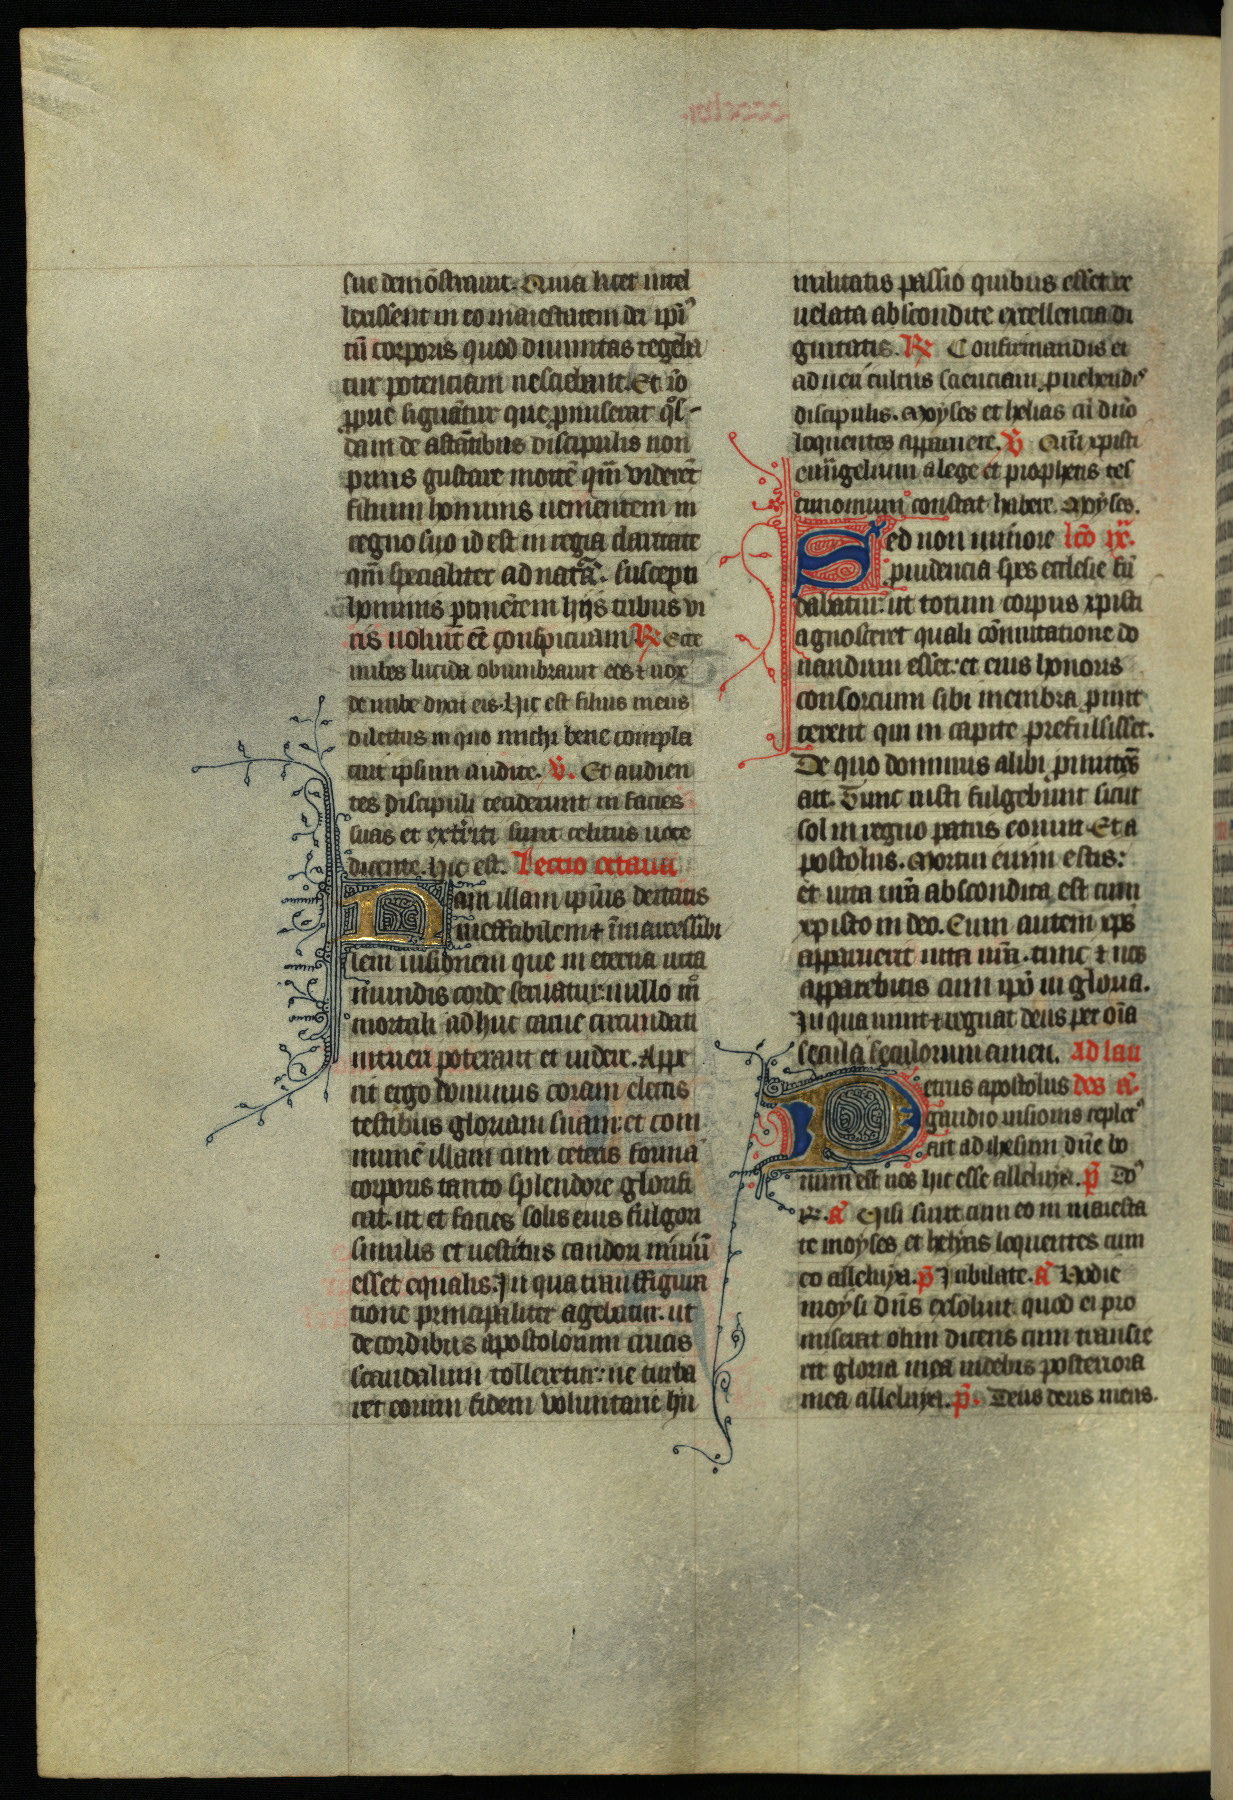 sue demōstrauit. Quia licet intel
lexissent in eo maiestatem dei ipīꝰ
tn̄ corporis quod diuinitas tegeba
tur potenciam nesciebant. Et iō
ꝓprie signātur que ꝓmiserat qōs
dam de astātibus discipulis non
prius gustare mortē qm̄ viderēt
filium hominis uenientem in
regno suo id est in regia claritate
qm̄ specialiter ad naturā suscepti
hominis ꝑtinētem hijs tribus vi
ris uoluit eē conspicuam R Ecce
nubes lucida obumbrauit eos ⁊ uox
de nube dixit eis. Hic est filius meus
dilectus in quo michi bene compla
cuit ipsum audite. V̄. Et audien
tes discipuli ceciderunt in facies
suas et extriti sunt celitus uoce
dicente. Hic est. Lectio octaua
Nam illam ipīus deitatis
ineffabilem ⁊ īinaccessibi
lem uisionem que in eterna uita
mundis corde seruatur: nullo m̊
mortali adhuc carne circundati
intueri poterant et uidere. Appe
rit ergo dominus coram electis
testibus gloriam suam: et com
munē illam cum ceteris formā
corporis tanto splendore glorifi
cat. ut et facies solis eius fulgori
similis et uestitus candori niuiū
esset equalis. In qua transfigura
tione principaliter agebatur. ut
de cordibus apostolorum crucis
scandalum tolleretur: ne turba
ret eorum fidem voluntarie hu
militatis passio quibus esset re
uelata abscondite excellencia di
gnitatis. R Confirmandis ei
ad ueri cultus scienciam ꝓuehendis
discipulis. Moyses et helias cū dn̄o
loquentes apparuere. V̄ Qm̄ xpisti
euūgelium a lege et prophetis tes
timonium constat habere. Moyses.
Sed non minore lcō ix.
ꝓuidencia spes ecclesie fū
dabatur: ut totum corpus xpisti
agnosceret quali cōmutatione do
nandum esset: et eius honoris
consorcium sibi membra ꝓmit
terent qui in capite prefulsisset.
De quo dominus alibi ꝓmittēs
ait. Tunc iusti fulgebunt sicut
sol in regno patris eorum. Et a
postolus. Mortui enim estis:
et uita ur̄a abscondita est cum
xpisto in deo. Cum autem xp̄s
apparuerit uita ur̄a. tunc ⁊ uos
apparebitis cum ipō in gloria.
In qua uiuit ⁊ regnat deus per oīa
secula seculorum amen. Ad lau
Petrus apostolus des A̅.
gaudio uisionis repletꝰ
ait ad ihesum dn̄e bo
num est nos hic esse alleluya. p̄ Dꝰ
R. A̅ Uisi sunt cum eo in maiesta
te moyses et helyas loquentes cum
eo alleluya. p̄ Iubilate. A̅ Hodie
moysi dn̄s exsoluit quod ei pro
miserat olim dicens cum transie
rit gloria mea uidebis posteriora
mea alleluya. p̄. Deus deus meus.